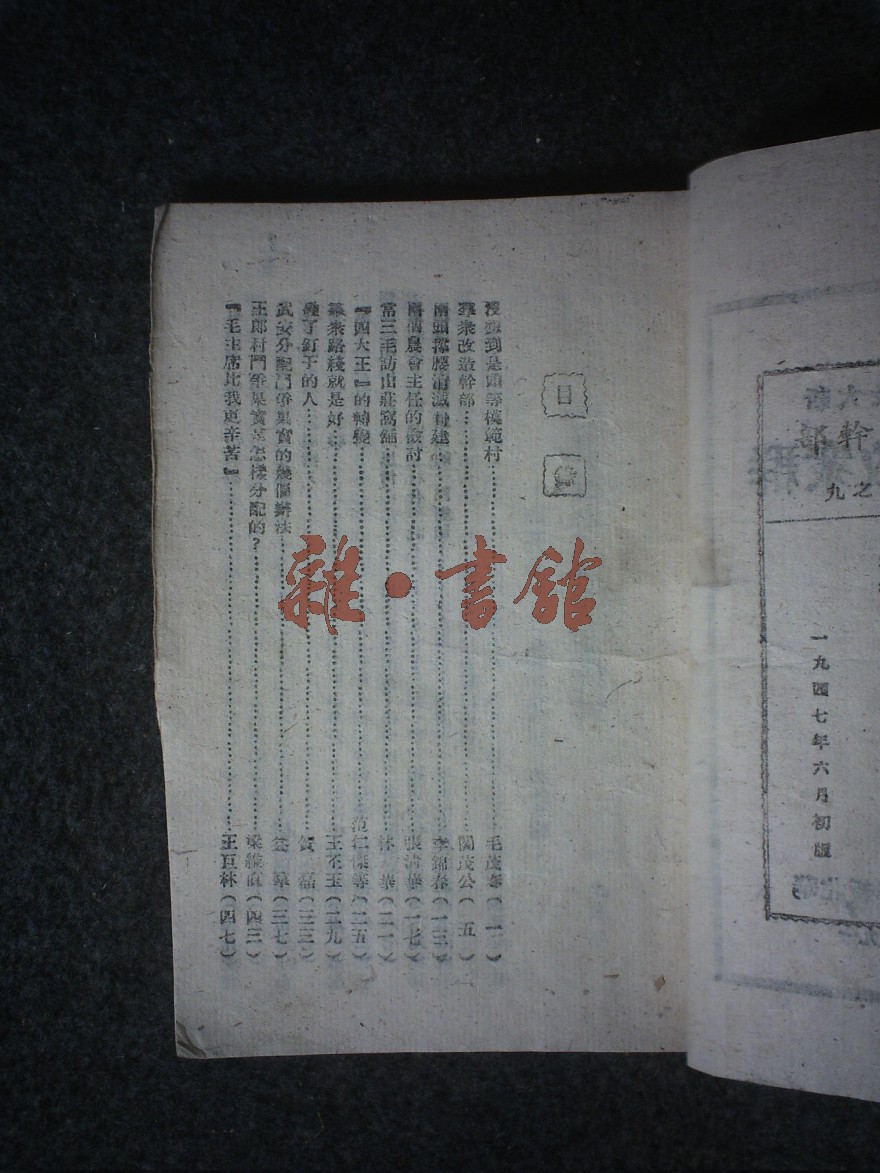 幹部
之九
一九四七年六月初版
目錄
沒想到是頭等模範村 毛茂春(一)
羣衆改造幹部 關茂公(五)
兩頭撐腰消滅封建 李錦春(一三)
兩個農會主任的檢討 張淸華(一七)
常三毛訪山莊窩舖 林華(二一)
『四大王』的轉變 范仁傑等(二五)
羣衆路綫就是好 王丕玉(二九)
碰了釘子的人 賀磊(三三)
武安分配鬥爭果實的幾個辦法 (三七)
王郎村鬥爭果實是怎樣分配的? 梁維直(四三)
『毛主席比我更辛苦』 王亘林(四七)
雜·書館